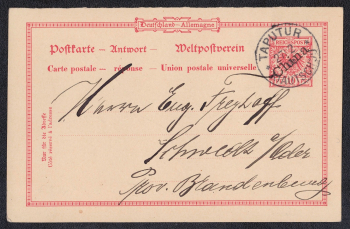 Deutschland - Allemagne.
Postkarte - Antwort - Weltpostverein
Carte postale - réponse - Union postale universelle
TAPUTUR
REICHSPOST
China
Nur für die Adresse
Côté réservé à l'adresse
Herrn Eug. Freyhoff
Schwedt a/Oder
Prov. Brandenburg